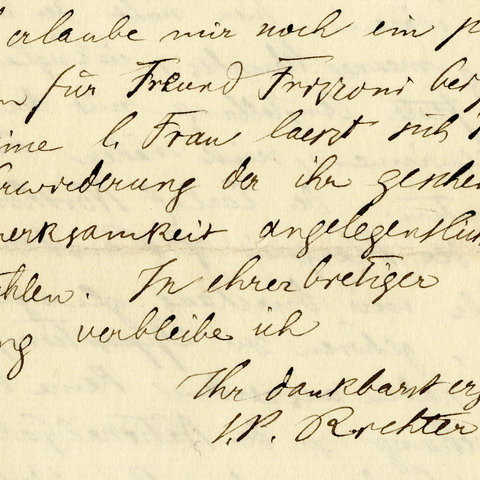 erlaube mir noch ein p
n für Freund Frizzoni bei
ine l. Frau laesst sich
rwiderung der ihr geschen
merksamkeit angelegentlich
hlen. In ehrerbietiger
ng verbleibe ich
Ihr dankbarst erg
J.P. Richter